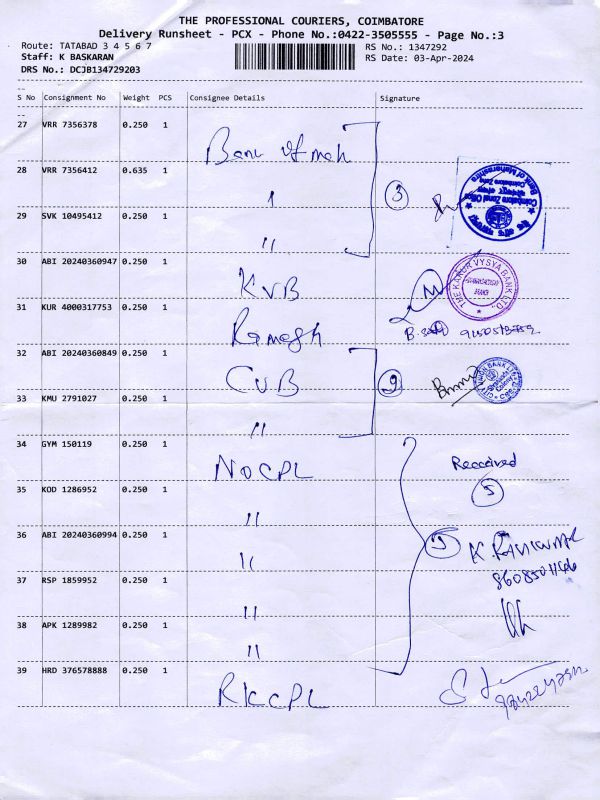 THE PROFESSIONAL COURIERS, COIMBATORE
Delivery Runsheet - PCX - Phone No.:0422-3505555 - Page No.:3
Route: TATABAD 3 4 5 6 7 RS No.: 1347292
Staff: K BASKARAN RS Date: 03-Apr-2024
DRS No.: DCJB134729203
S No Consignment No Weight PCS Consignee Details Signature
27 VRR 7356378 0.250 1
Bank of mah
28 VRR 7356412 0.635 1
"
3
29 SVK 10495412 0.250 1
"
30 ABI 20240360947 0.250 1
KVB
THE KARUR VYSYA BANK LTD.
31 KUR 4000317753 0.250 1
Ramesh
32 ABI 20240360849 0.250 1
CUB
33 KMU 2791027 0.250 1
"
34 GYM 150119 0.250 1
NOCPL
Received
5
35 KOD 1286952 0.250 1
"
36 ABI 20240360994 0.250 1
"
5
37 RSP 1859952 0.250 1
"
38 APK 1289982 0.250 1
"
39 HRD 376578888 0.250 1
RKCCPL